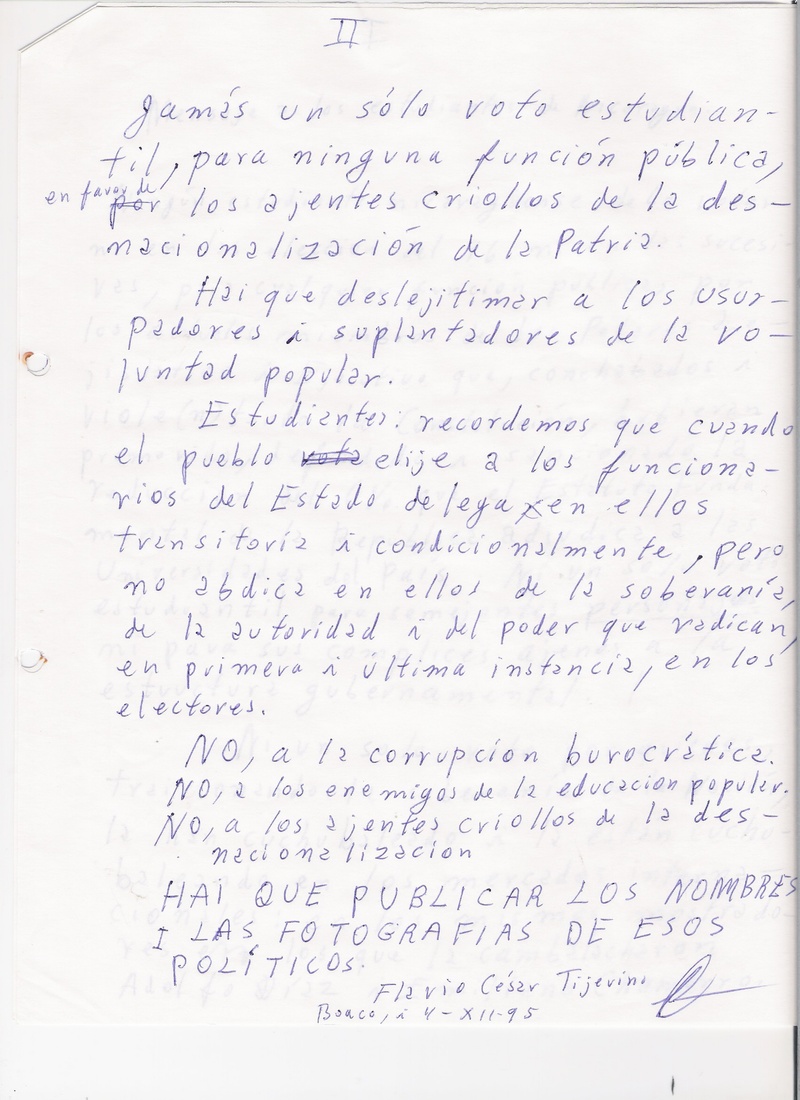 II
Jamás un sólo voto estudian-
til, para ninguna función pública,
en favor de
por los ajentes criollos de la des-
nacionalización de la Patria.
Hai que deslejitimar a los usur-
padores i suplantadores de la vo-
luntad popular.
Estudiantes: recordemos que cuando
el pueblo vota elije a los funciona-
rios del Estado delega en ellos
transitoria i condicionalmente, pero
no abdica en ellos de la soberanía,
de la autoridad i del poder que radican,
en primera i última instancia, en los
electores.
NO, a la corrupcion burocrática.
NO, a los enemigos de la educacion popular.
NO, a los ajentes criollos de la des-
nacionalizacion
HAI QUE PUBLICAR LOS NOMBRES
I LAS FOTOGRAFIAS DE ESOS
POLÍTICOS.
Flavio César Tijerino
Boaco, i 4-XII-95